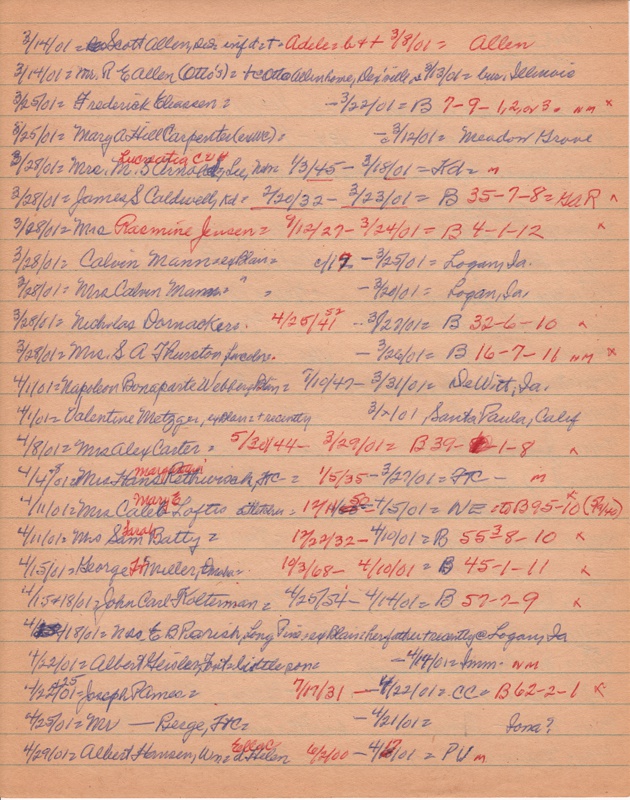 3/14/01 = Scott Allen, inf d + t = Adele = b + t 3/8/01 = Allen
3/14/01 = Mr. R E Allen (Otto's) = + c Otto Allen home, 3/13/01 = bur. Illinois
3/25/01 = Frederick Eliassen = - 3/22/01 = B 7-9-1, 2, or 3. nm x
3/25/01 = Mary A Hill Carpenter = - 3/12/01 = Meadow Grove
3/28/01 = Mrs. M. S Arnold, Lucretia C 1/3/45 - 3/18/01 = Kd = m
3/28/01 = James S Caldwell, Kd = 2/20/32 - 3/23/01 = B 35-7-8 = GAR x
3/28/01 = Mrs Rasmine Jensen = 9/12/27 - 3/24/01 = B 4-1-12 x
3/28/01 = Calvin Mann = ex Blair = c/17 - 3/25/01 = Logan, Ia.
3/28/01 = Mrs Calvin Mann. " = - 3/20/01 = Logan, Ia,
3/28/01 = Nicholas Dornackers. 4/25/41 52 - 3/27/01 = B 32-6-10 x
3/28/01 = Mrs. S A Thurston, Lincoln. - 3/26/01 = B 16-7-11 nm x
4/1/01 = Napoleon Bonaparte Webber, Blair = 7/10/47 - 3/31/01 = DeWitt, Ia.
4/1/01 = Valentine Metzger, ex Blair = + recently 3/x/01, Santa Paula, Calif
4/8/01 = Mrs Alex Carter = 5/30/44 - 3/29/01 = B 39-1-8 x
Mrs Hans Rethwisch, FC = 1/5/35 - 3/27/01 = FC - m
4/11/01 = Mrs Caleb Loftis Mary E = 50 - 4/5/01 = NE = B95-10
4/11/01 = Mrs Sam Batty Sarah = 12/22/32 - 4/10/01 = B 55 3 8-10 x
4/15/01 = George H Miller, Omaha = 10/3/68 - 4/10/01 = B 45-1-11 x
4/15 + 18/01 = John Carl Kolterman = 4/25/54 - 4/14/01 = B 57-7-9 x
4/18/01 = Mrs E B Parish, Long Pine, ex Blair = her father + recently @ Logan, Ia
4/22/01 = Albert Geisler, Fort = - 4/14/01 = Imm. nm
Joseph Rames = 7/17/31 - 4/22/01 = CC = B 62-2-1 x
4/25/01 = Mr — Berge, FC = - 4/21/01 = Iona?
4/29/01 = Albert Hansen, Wm = d Helen Ella C 6/2/00 - = PV m